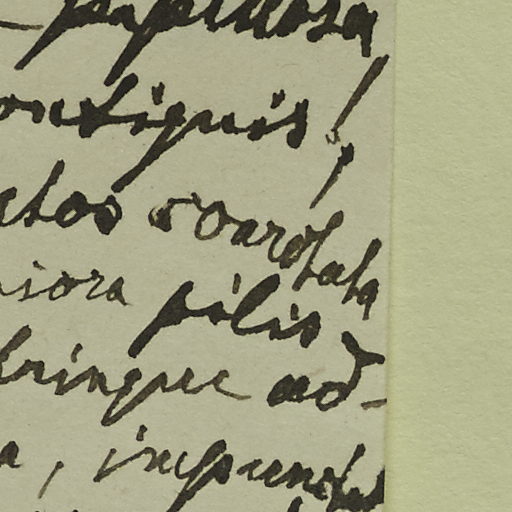 papillosa
ontiguis,
atos coarctata
iora pilis
bringue ad-
a, impunctat